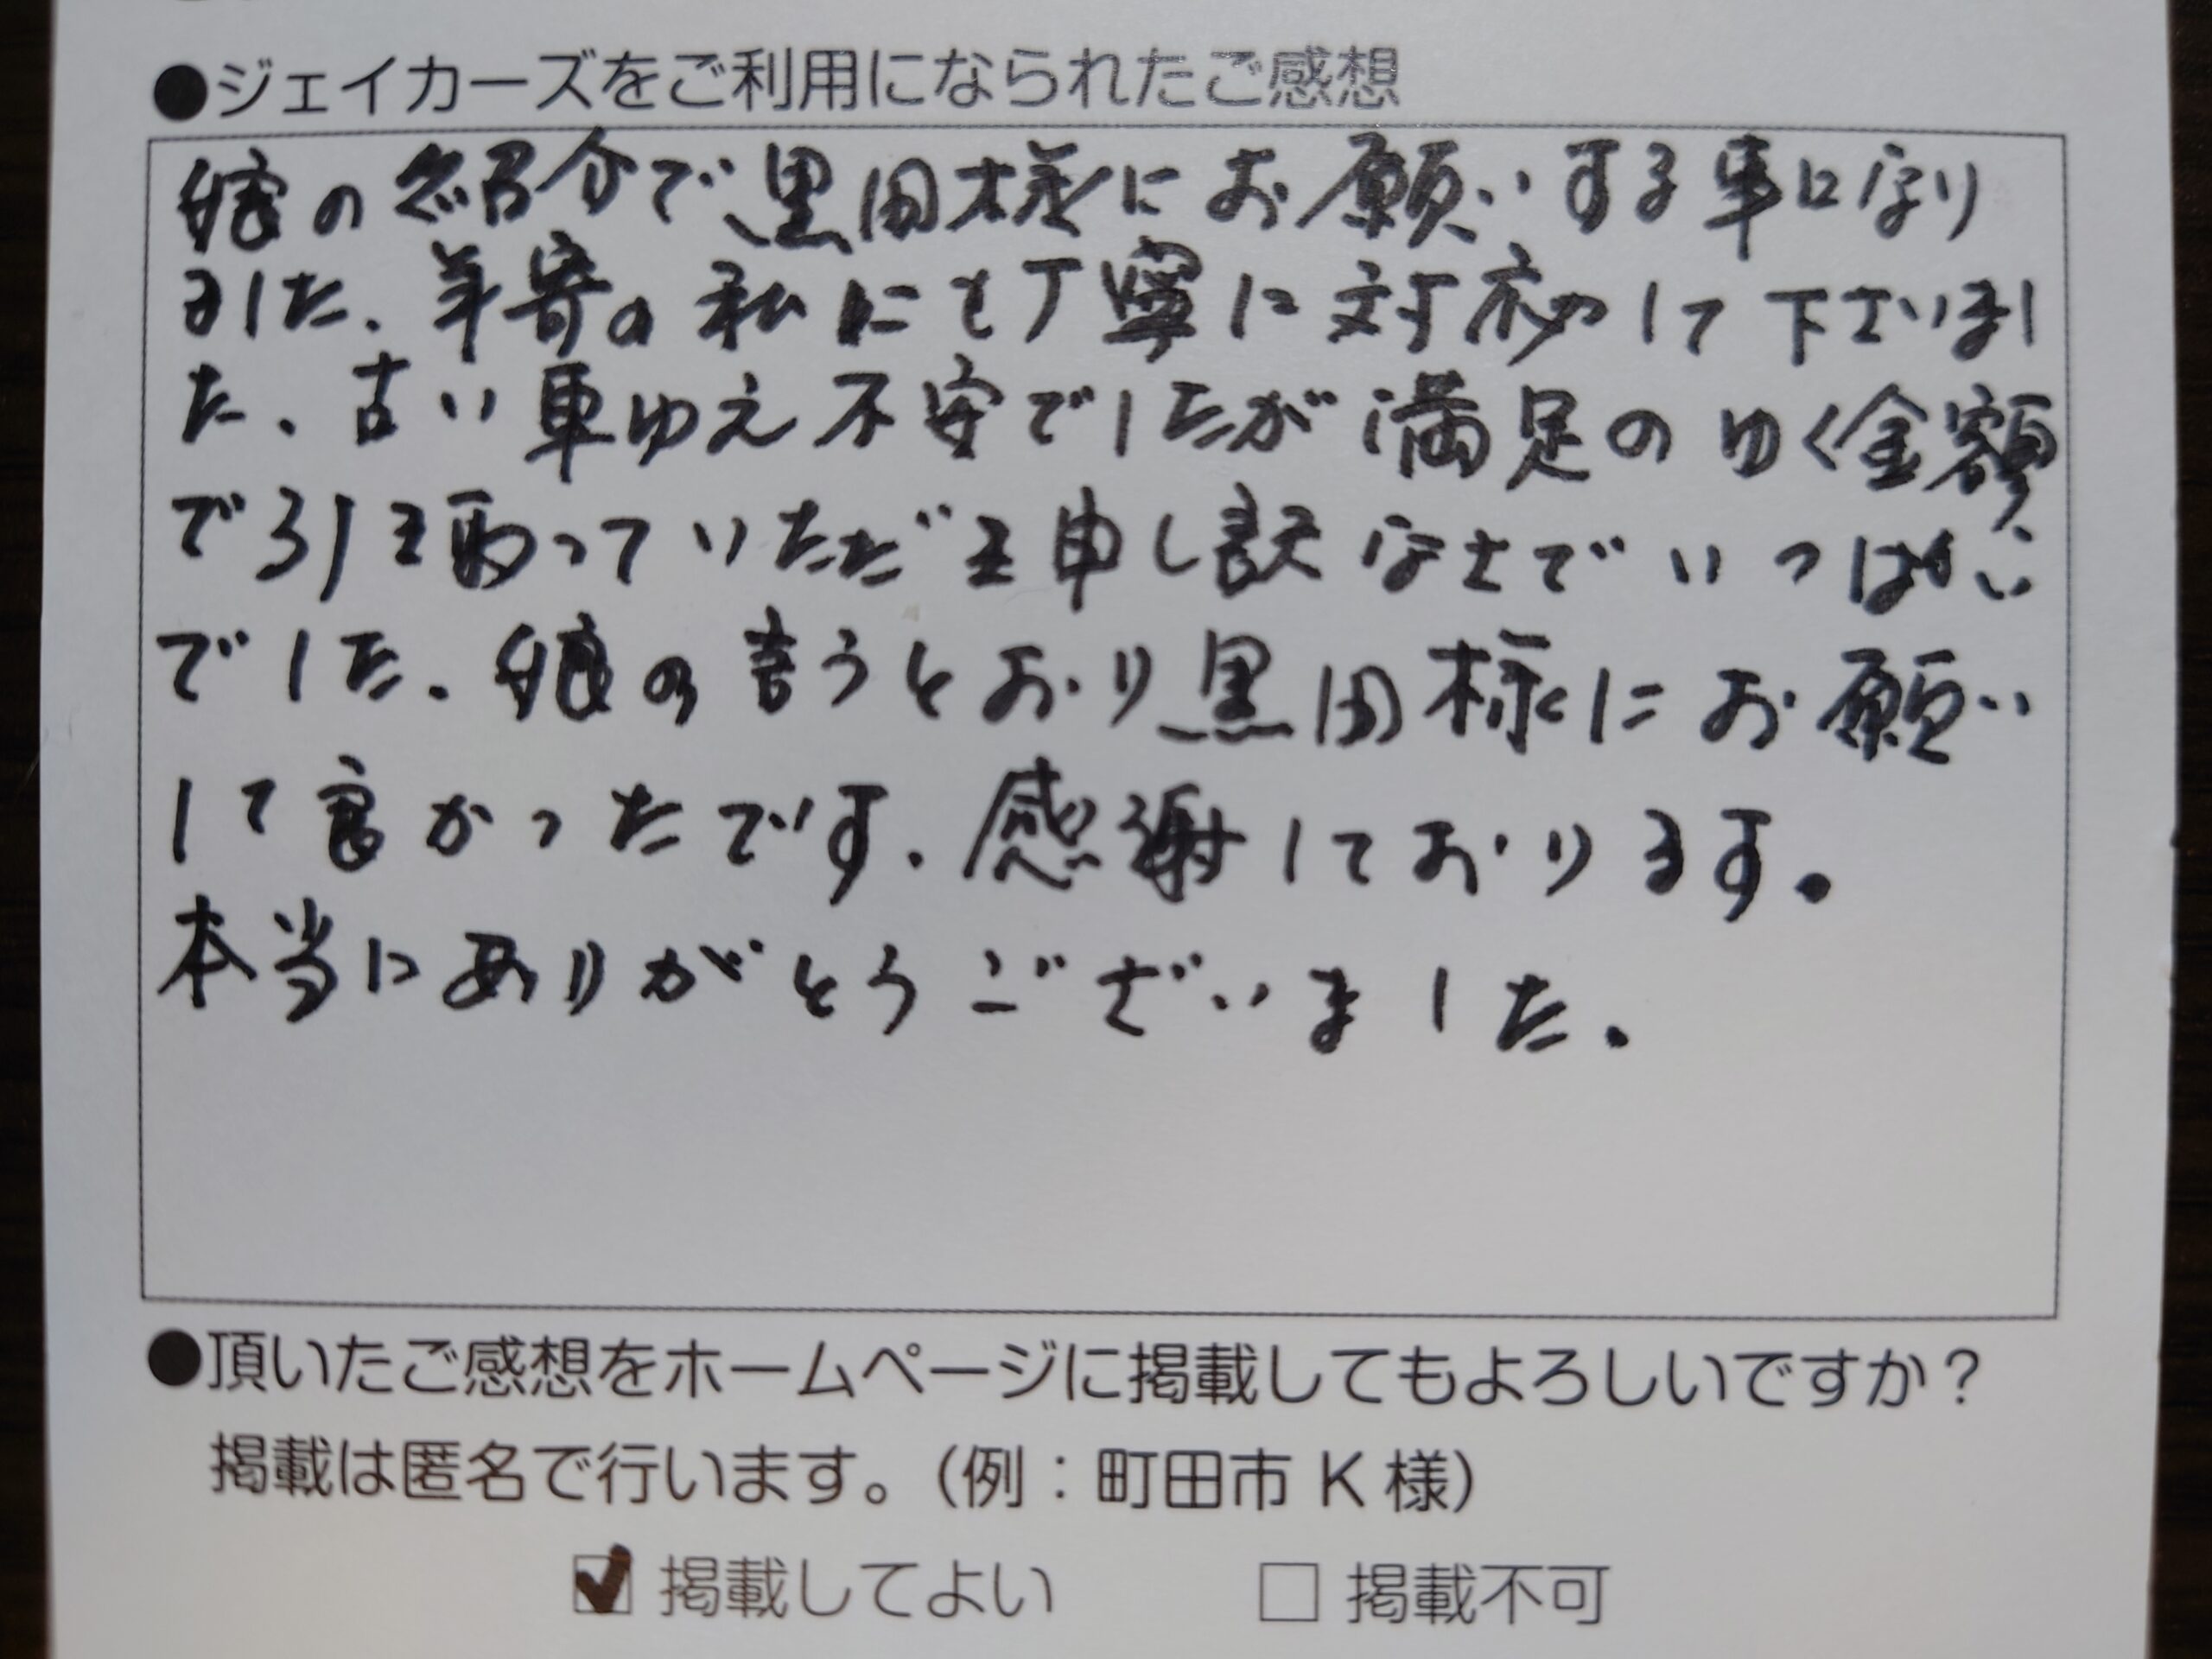 ●ジェイカーズをご利用になられたご感想
娘の紹介で黒田様にお願いする事になり
ました。年寄の私にも丁寧に対応して下さいまし
た。古い車ゆえ不安でしたが満足のゆく金額
で引き取っていただき申し訳なさでいっぱい
でした。娘の言うとおり黒田様にお願い
して良かったです。感謝しております。
本当にありがとうございました。
●頂いたご感想をホームページに掲載してもよろしいですか？
掲載は匿名で行います。（例：町田市 K 様）
☑ 掲載してよい □ 掲載不可